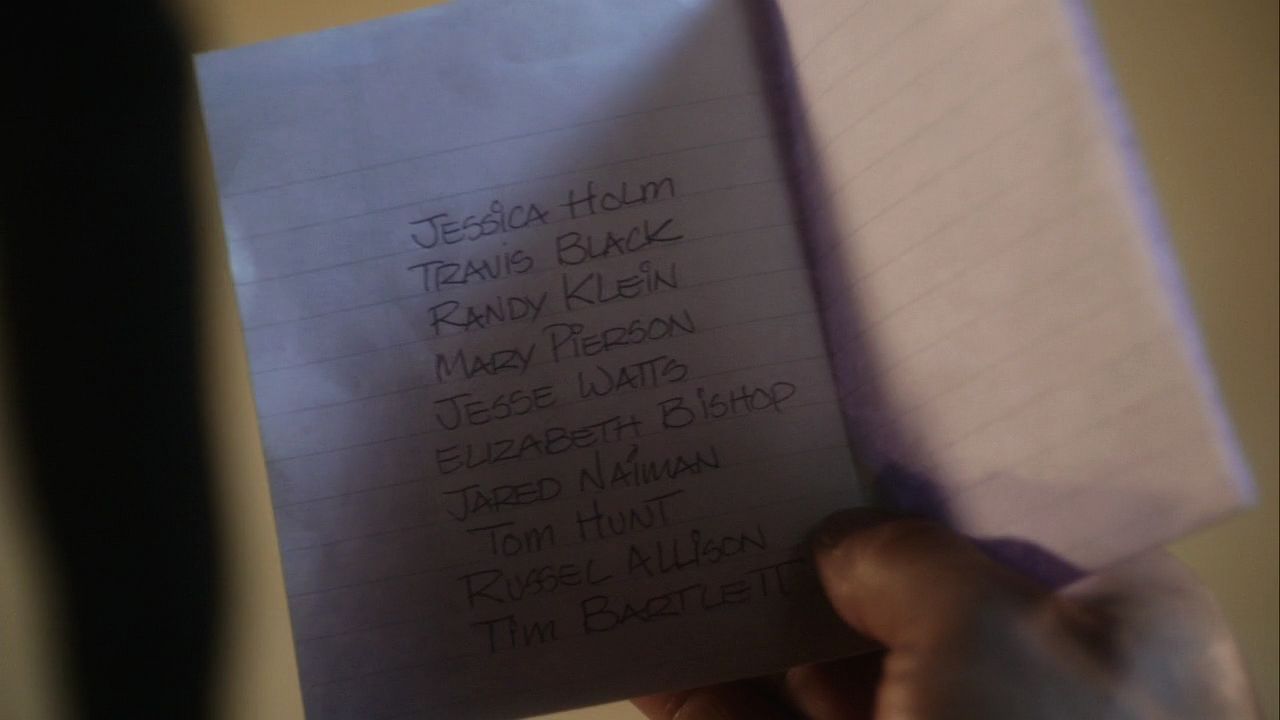 JESSiCA HOLM
TRAViS BLACK
RANDY KLEiN
MARY PiERSON
JESSE WATTS
ELIZABETH BiSHOP
JARED NAiMAN
Tom HUNT
RUSSEL ALLiSON
Tim BARTLETT